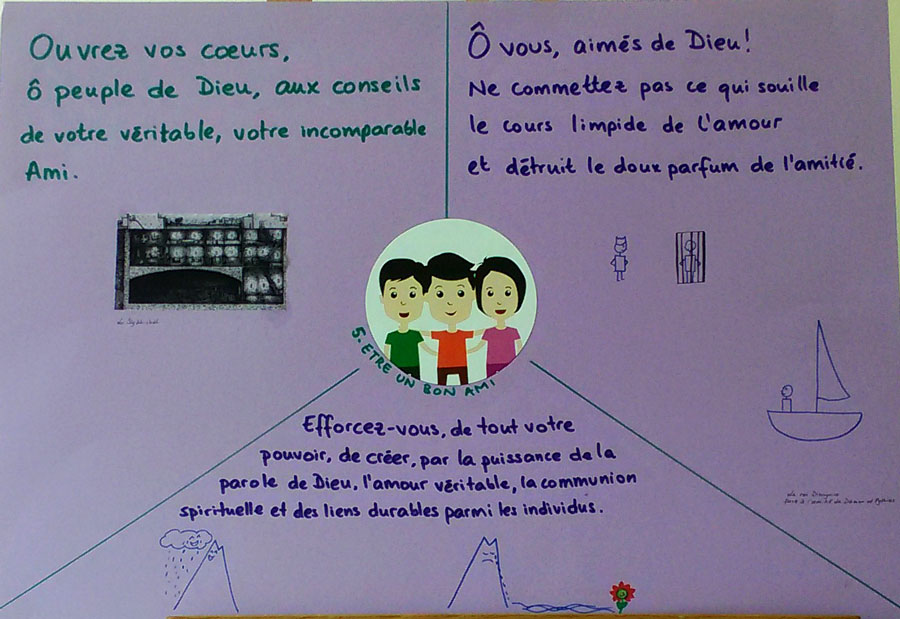 Ouvrez vos coeurs,
ô peuple de Dieu, aux conseils
de votre véritable, votre incomparable
Ami.
Ô vous, aimés de Dieu!
Ne commettez pas ce qui souille
le cours limpide de l'amour
et détruit le doux parfum de l'amitié.
5. ETRE UN BON AMI
Efforcez-vous, de tout votre
pouvoir, de créer, par la puissance de la
parole de Dieu, l'amour véritable, la communion
spirituelle et des liens durables parmi les individus.